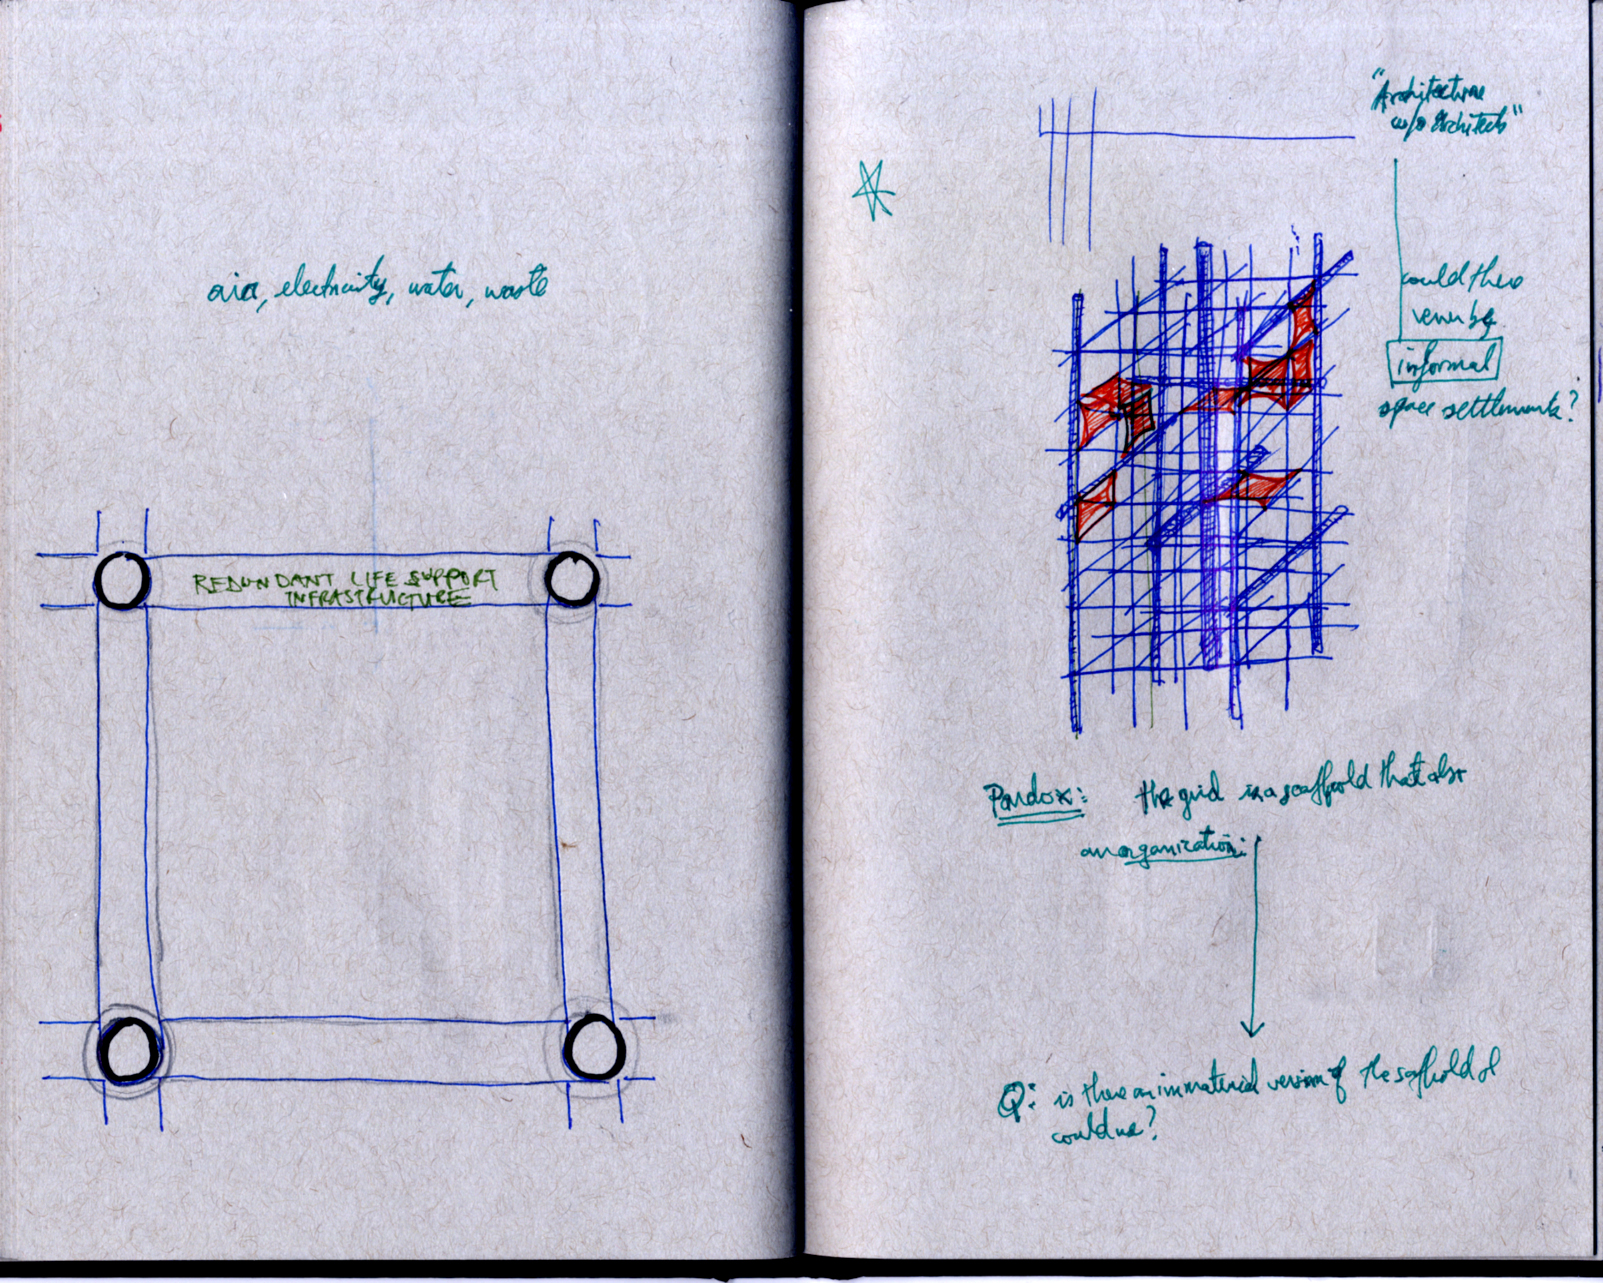 air, electricity, water, waste
REDUNDANT LIFE SUPPORT
INFRASTRUCTURE
"Architecture
w/o Architects"
could there
ever be
informal
space settlements?
Pardox: the grid is a scaffold that also
an organization:
Q: is there an immaterial version of the scaffold I
could use?